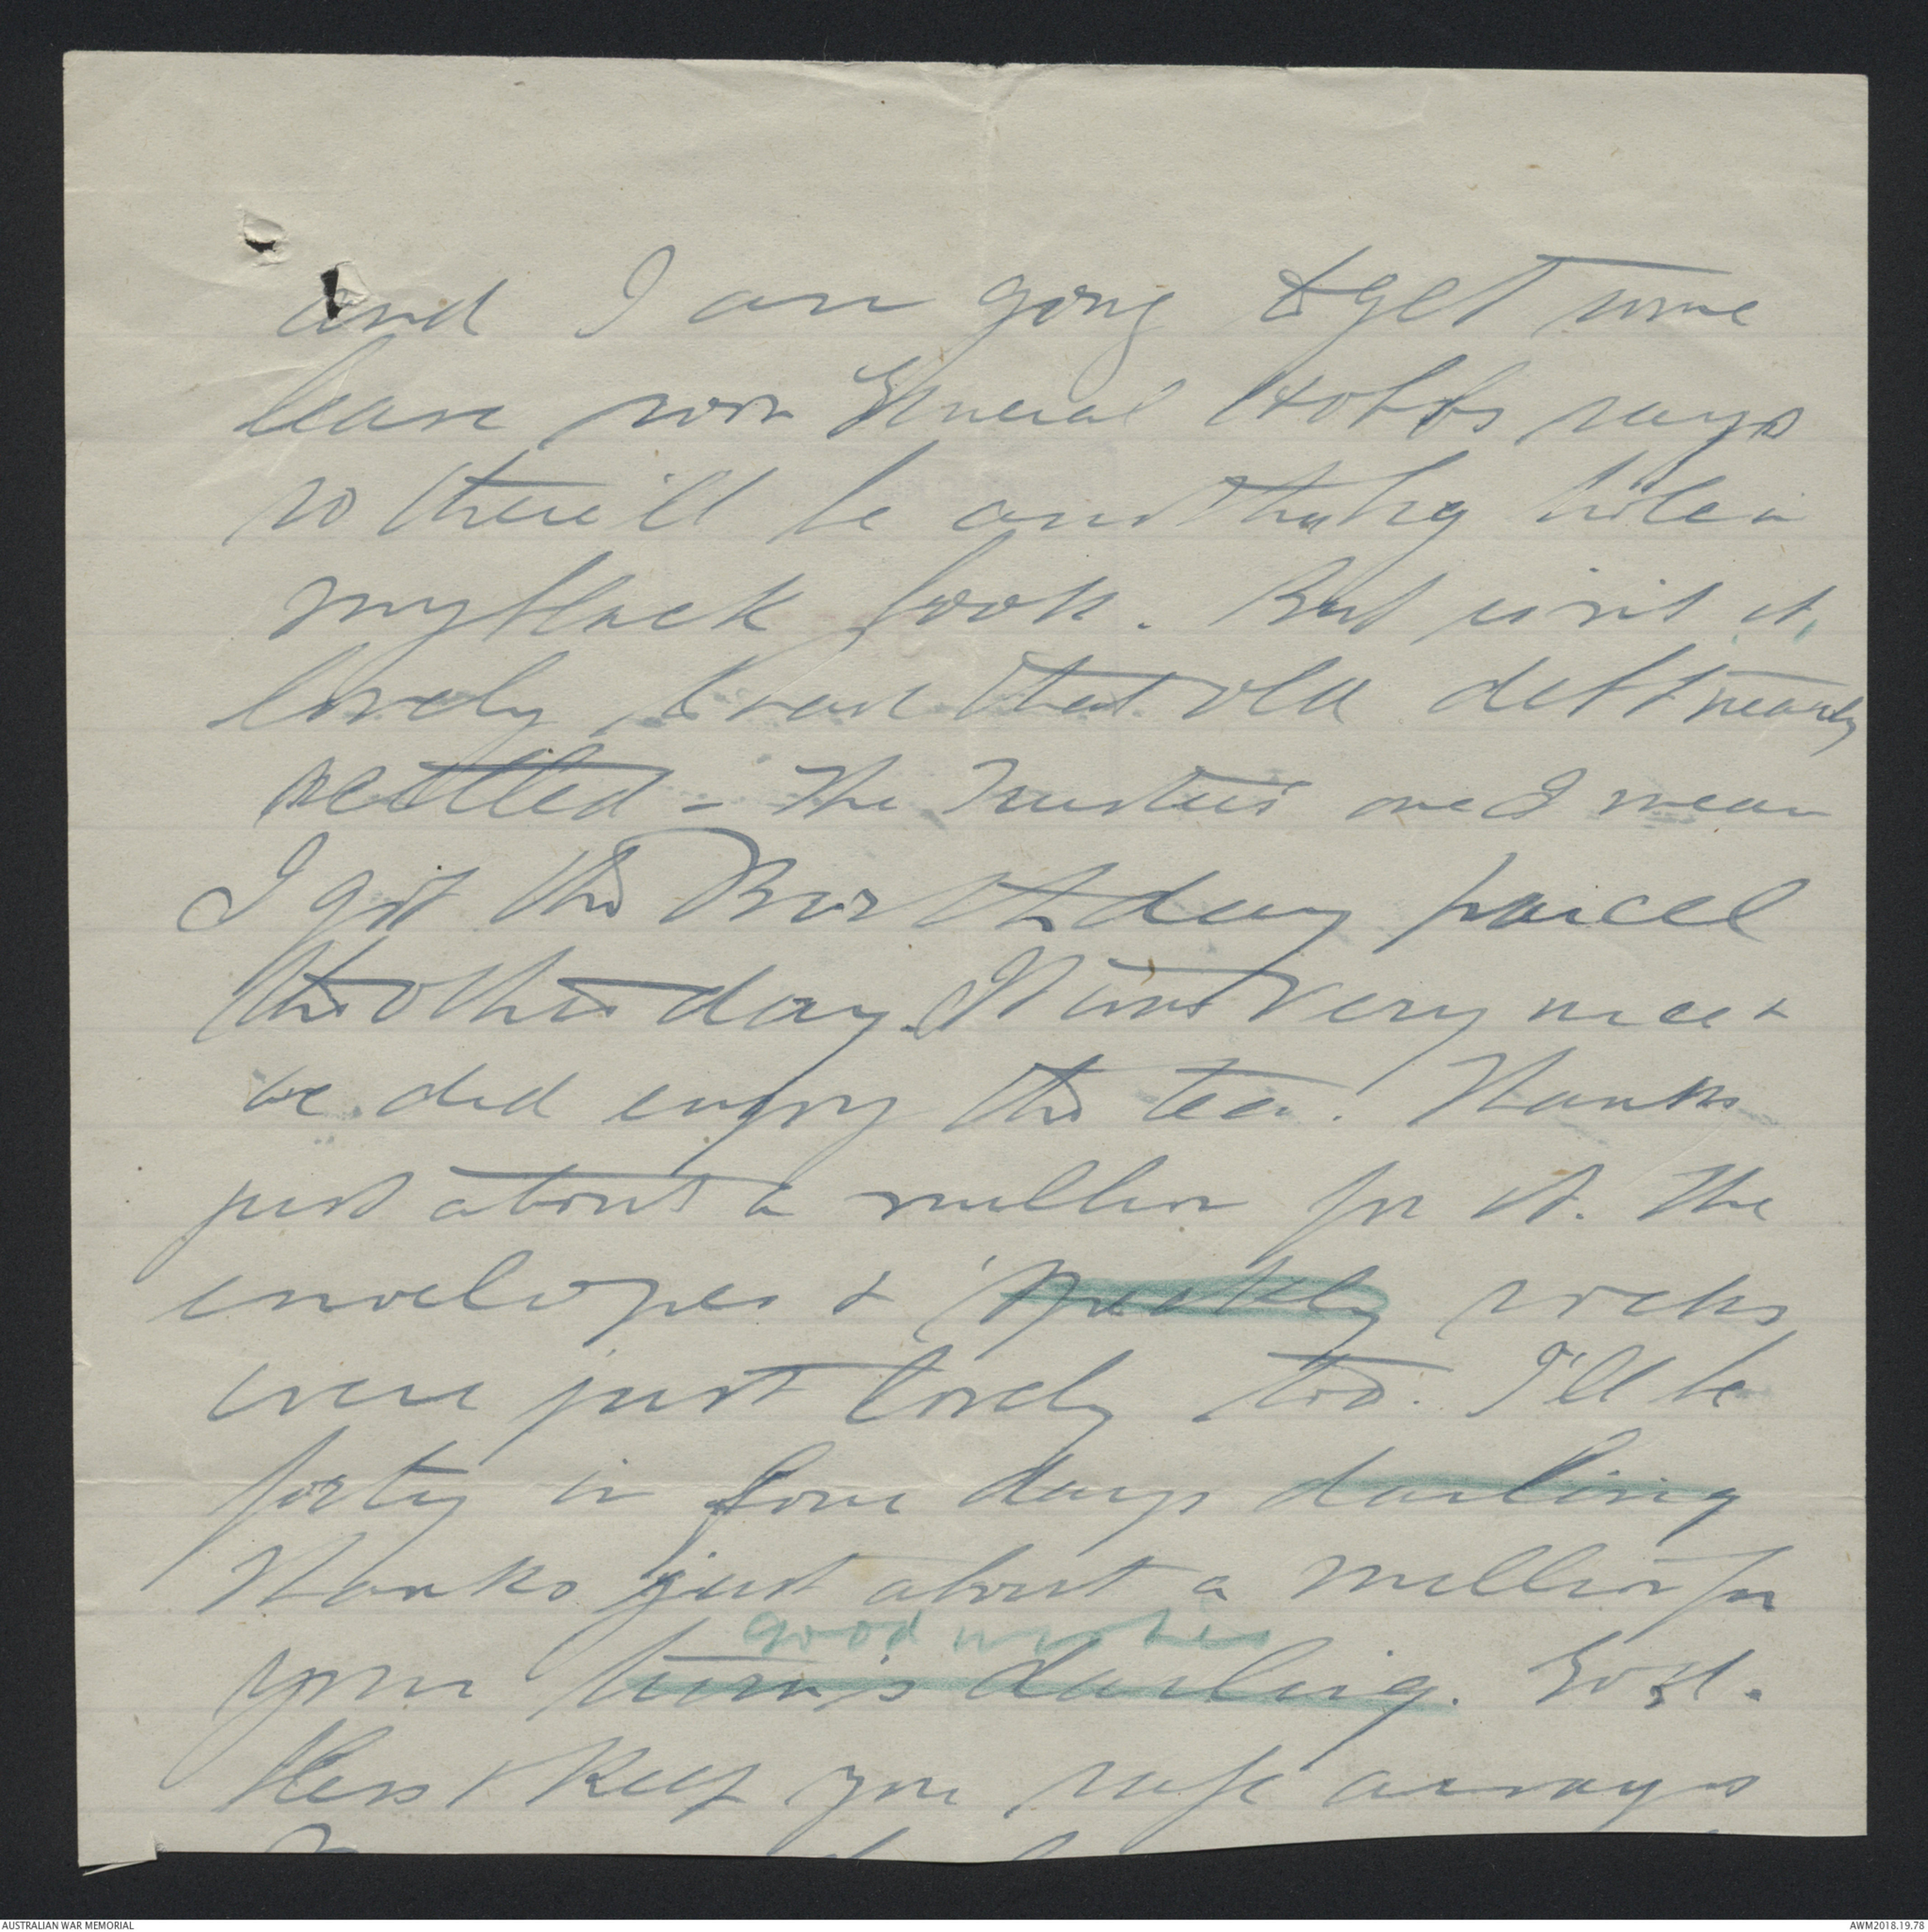 and I am going to get some
leave soon General Hobbs says
so there'll be another big hole in
my bank book. But isn't it
lovely to have that old debt nearly
settled - The Trustees one I mean
I got the Birthday parcel
the other day. It was very nice &
we did enjoy the tea. Thanks
just about a million for it. The
envelopes & socks
were just lovely too. I'll be
forty in four days darling
Thanks just about a million for
good wishes
your darling. God.
bless & keep you safe always
AUSTRALIAN WAR MEMORIAL
AWM2018.19.78